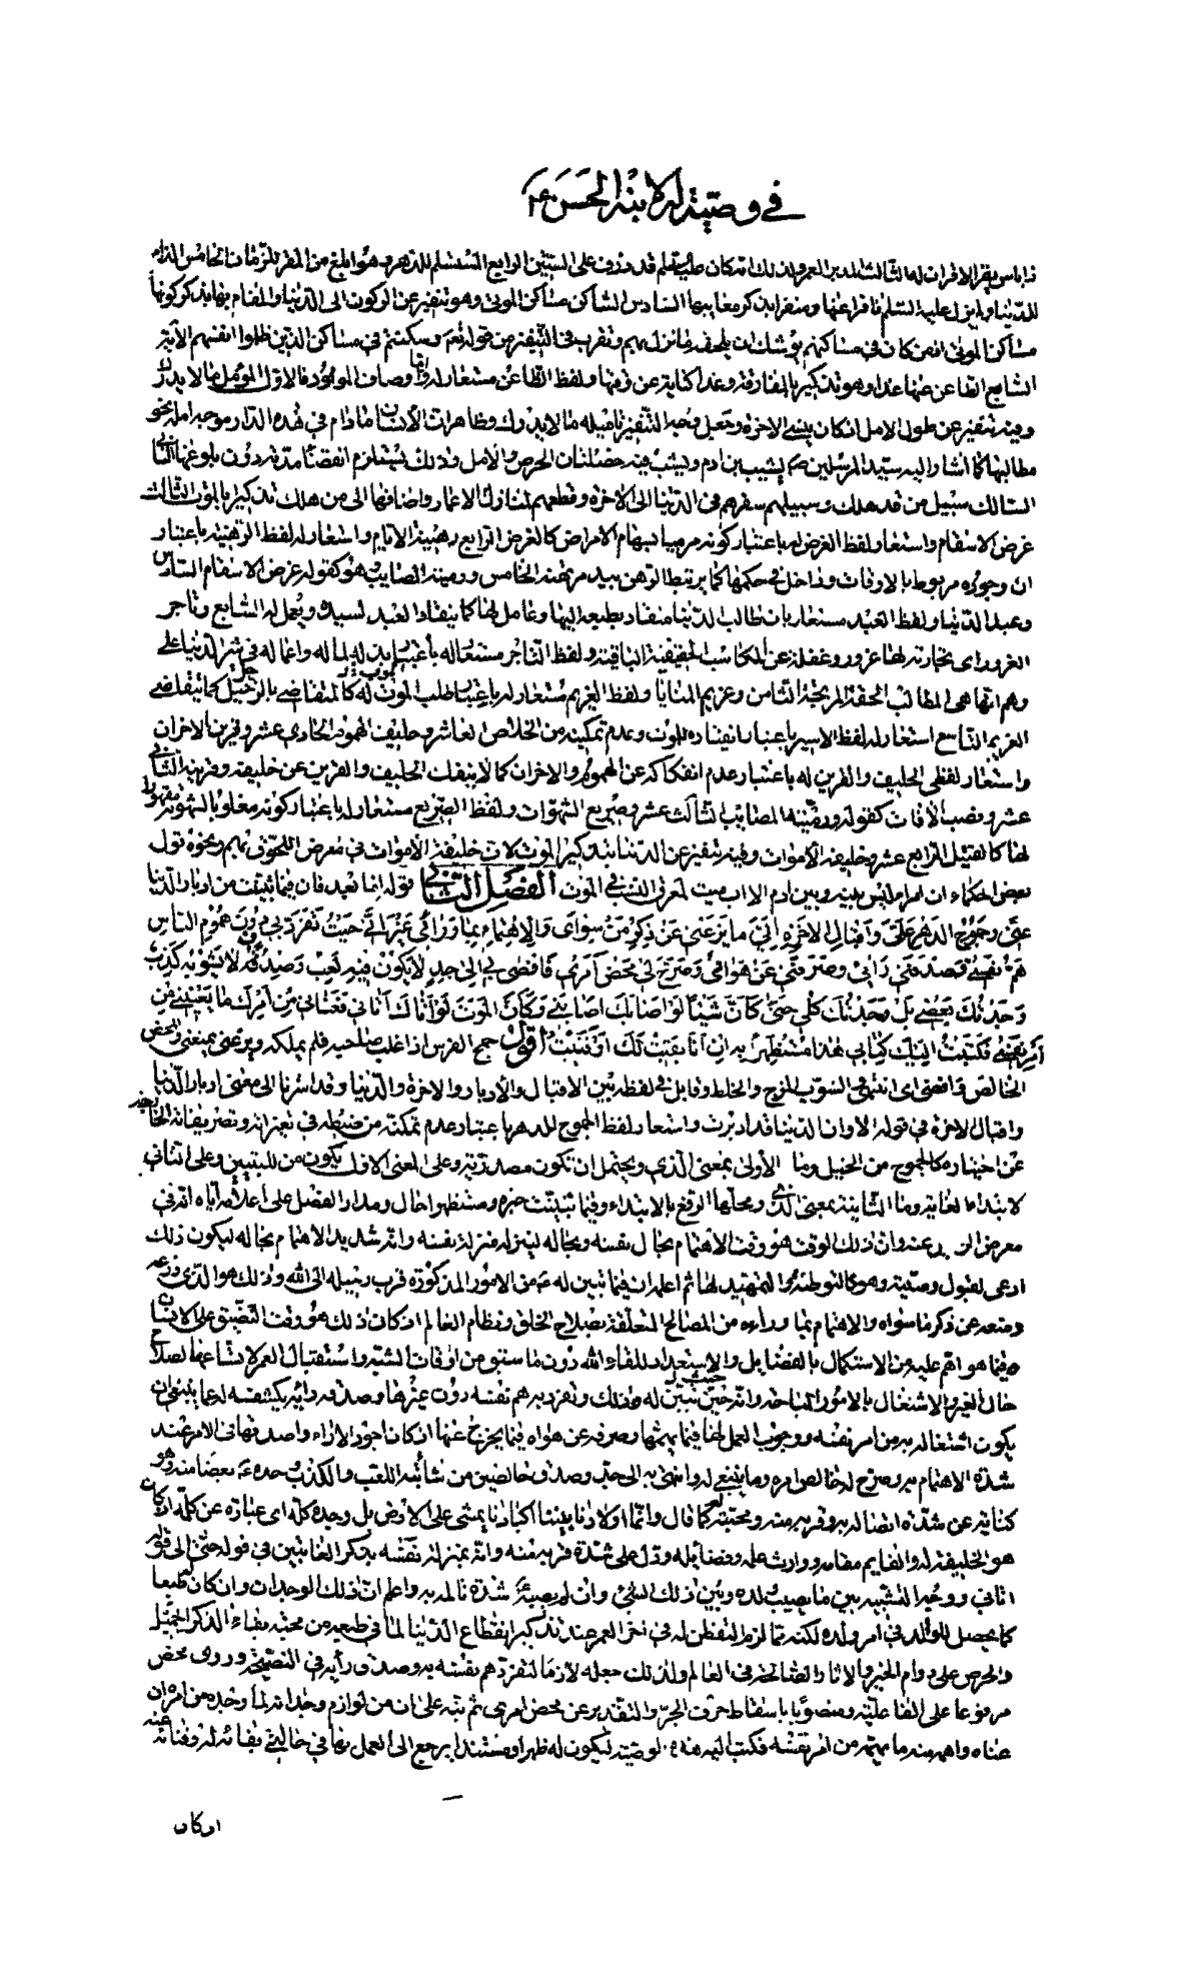 في وصيته له لابنه الحسن ع
باس يقر الاقران له الثالث المدبر العمر ولذلك انه كان ع قد ذرف على الستين الرابع المستسلم للدهر وهو ابلغ من المقر للزمان الخامس الذام
للدنيا ولم يزل عليه السلم نافرا عنها ومنفرا بذكر معايبها السادس الساكن مساكن الموتى وهو تنفير عن الركون الى الدنيا والمقام بها بذكر كونها
مساكن الموتى اذ من كان في مساكنهم يوشك ان يلحقه ما نزل بهم ويقرب في التنفير من قوله تع وسكنتم في مساكن الذين ظلموا انفسهم الاية
السابع الظاعن عنها غدا وهو تذكير بالمفارقة وغدا كناية عن قربها ولفظ الظاعن مستعار له واما اوصاف المولود فالاول المؤمل ما لا يدرك
وفيه تنفير عن طول الامل اذ كان ينسى الاخرة وجعل وجه التنفير تاميله ما لا يدرك وظاهر ان الانسان ما دام في هذه الدار موجه امله نحو
مطالبها كما اشار اليه سيد المرسلين ص يشيب بن ادم ويشب فيه خصلتان الحرص والامل وذلك يستلزم انقضاء مدته دون بلوغها الثاني
السالك سبيل من قد هلك وسبيلهم سفرهم في الدنيا الى الاخرة وقطعهم لمنازل الاعمار واضافها الى من هلك تذكيرا بالموت الثالث
غرض الاسقام واستعار لفظ الغرض له باعتبار كونه مرميا بسهام الامراض كالغرض الرابع رهينة الايام واستعار له لفظ الرهينة باعتبار
ان وجوده مربوط بالاوقات وداخل في حكمها كما يرتبط الرهن بيد مرتهنه الخامس ورمية المصائب هو كقوله غرض الاسقام السادس
وعبد الدنيا ولفظ العبد مستعار لان طالب الدنيا منقاد بطبعه اليها وعامل لها كما ينقاد العبد لسيده ويعمل له السابع وتاجر
الغرور اى تجارته لها غرور وغفلة عن المكاسب الحقيقية الباقية ولفظ التاجر مستعار له باعتبار بذله لماله واعماله في شر الدنيا على
وهم انها هى المطالب الحقة المربحة الثامن وغريم المنايا ولفظ الغريم مستعار له باعتبار طلب الموت له كالمتقاضى بالرحيل كما يتقاضى
الغريم التاسع استعار له لفظ الاسير باعتبار انقياده للموت وعدم تمكينه من الخلاص العاشر وحليف الهموم الحادى عشر وقرين الاحزان
واستعار لفظى الحليف والقرين له باعتبار عدم انفكاكه عن الهموم والاحزان كما لا ينفك الحليف والقرين عن حليفه وقرينه الثاني
عشر ونصب الآفات كقوله ورمية المصائب الثالث عشر وصريع الشهوات ولفظ الصريع مستعار له باعتبار كونه مغلوبا لشهوته مقهورا
لها كالقتيل الرابع عشر وخليفة الاموات وفيه تنفير عن الدنيا بتذكير الموت لان خليفة الاموات في معرض اللحوق بهم ونحوه قول
بعض الحكماء ان امرءا ليس بينه وبين ادم الا اب ميت لمعرق النسب في الموت الفصل الثاني قوله اما بعد فان فيما تبينت من ادبار الدنيا
عنى وجموح الدهر على واقبال الاخرة الى ما يزعنى عن ذكر من سواى والاهتمام بما ورائى غير انى حيث تفرد بى دون هموم الناس
هم نفسى فصدفنى رائى وصرفنى عن هواى وصرح لى محض امرى فافضى بى الى جد لا يكون فيه لعب وصدق لا يشوبه كذب
وجدتك بعضى بل وجدتك كلى حتى كان شيئا لو اصابك اصابنى وكان الموت لو اتاك اتانى فعنانى من امرك ما يعنينى من
امر نفسى فكتبت اليك كتابى هذا مستظهرا به ان انا بقيت لك او فنيت اقول جمح الفرس اذا غلب صاحبه فلم يملكه ويزعنى يمنعنى والمحض
الخالص وافضى اى انتهى والشوب المزج والخلط وقابل في لفظه بين الاقبال والادبار والاخرة والدنيا وقد اشرنا الى معنى ادبار الدنيا
واقبال الاخرة في قوله الا وان الدنيا قد ادبرت واستعار لفظ الجموح للدهر باعتبار عدم تمكنه من ضبطه في تغيراته وتصريفاته الخارجة
عن اختياره كالجموح من الخيل وما الاولى بمعنى الذى ويحتمل ان تكون مصدرية وعلى المعنى الاول يكون من للتبيين وعلى الثاني
لابتداء الغاية وما الثانية بمعنى الذى ومحلها الرفع بالابتداء وفيما تبينت خبره ومستظهرا حال ومدار الفصل على اعلامه اياه انه في
معرض ان يرعنه وان ذلك الوقت هو وقت الاهتمام بحال نفسه وبحاله لينزله منزلة نفسه وانه شديد الاهتمام بحاله ليكون ذلك
ادعى لقبول وصيته وهو كالتوطئة والتمهيد لها ثم اعلم ان فيما تبين له ع من الامور المذكورة قرب رحيله الى الله وذلك هو الذى وزعه
ومنعه عن ذكر ما سواه والاهتمام بما وراءه من المصالح المتعلقة بصلاح الخلق ونظام العالم اذ كان ذلك هو وقت التضيق على الانسان
فيما هو اهم عليه من الاستكمال بالفضايل والاستعداد للقاء الله دون ما سبق من اوقات الشبيبة واستقبال العمر لاتساعها لصلاح
حال الغير والاشتغال بالامور المباحة وانه حين تبين له ذلك وتفرد به هم نفسه دون غيرها وصدقه رأيه بكشفه له عما ينبغى ان
يكون اشتغاله به من امر نفسه ووجوب العمل لها فيما يهمها وصرفه عن هواه فيما يخرج عنها اذ كان اجود الاراء واصدقها في الامر عند
شدة الاهتمام به وصرح له خالص امره وما ينبغى له وانتهى به الى جد وصدق خالصين من شائبة اللعب والكذب وجده ع بعضا منه وهو
كناية عن شدة اتصاله به وقربه منه ومحبته له كما قال وانما اولادنا بيننا اكبادنا يمشى على الارض بل وجده كله اى عبارة عن كله اذ كان
هو الخليفة له والقايم مقامه ووارث علمه وفضايله ودل على شدة قربه منه وانه بمنزلة نفسه بذكر الغايتين في قوله حتى الى قوله
اتانى ووجه التشبيه بين ما يصيب ولده وبين ذلك الشئ وان لم يصبه ع شدة تالمه به واعلم ان ذلك الوجدان وان كان طبعا
كما يحصل للوالد في امر ولده لكنه مما لزم التفطن له في اخر العمر عند تذكير انقطاع الدنيا لما في طبعه من محبة بقاء الذكر الجميل
والحرص على دوام الخير والاثار الصالحة في العالم ولذلك جعله لازما لتفرد هم نفسه به وصدق رأيه في النصيحة وروى محض
مرفوعا على الفاعلية ومنصوبا باسقاط حرف الجر والتقدير عن محض امرى ثم نبه على ان من لوازم وجدانه لما وجده من امره ان
عناه واهمه منه ما يهمه من امر نفسه فكتب اليه هذه الوصية ليكون له ظهرا ومستندا يرجع الى العمل بها في حالتى بقائه له وفنائه عنه
اذ كان